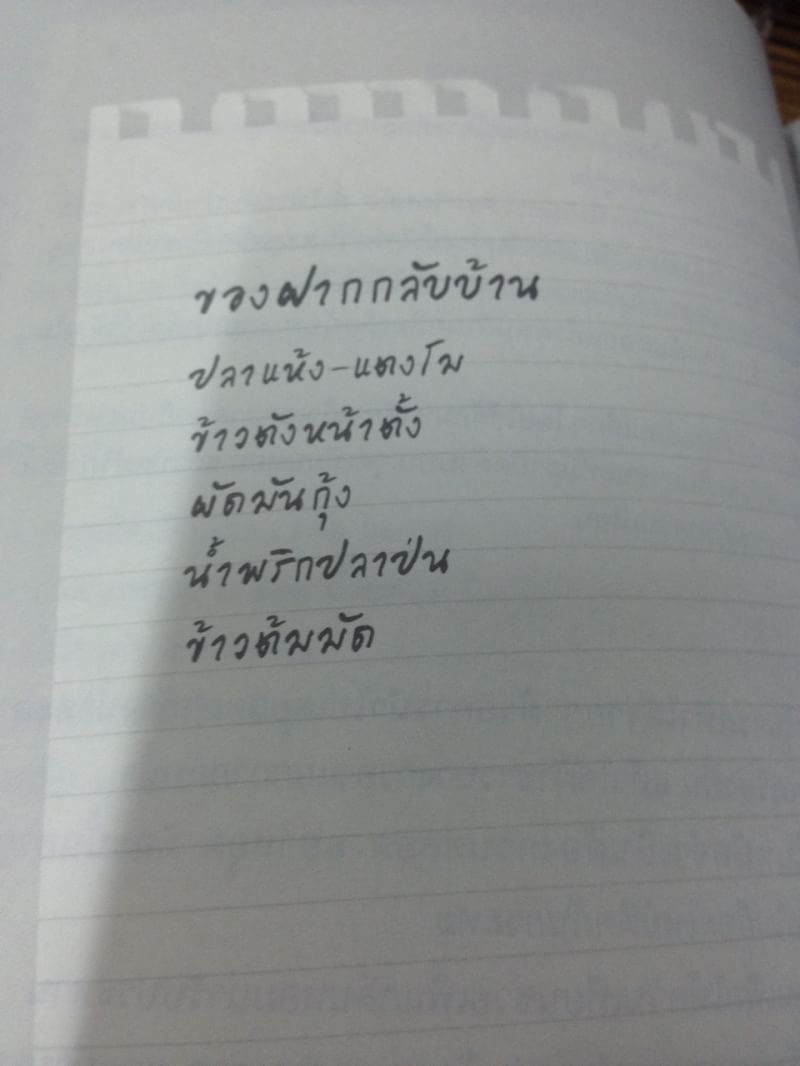 ของฝากกลับบ้าน
ปลาแห้ง-แตงโม
ข้าวตังหน้าตั้ง
ผัดมันกุ้ง
น้ำพริกปลาป่น
ข้าวต้มมัด